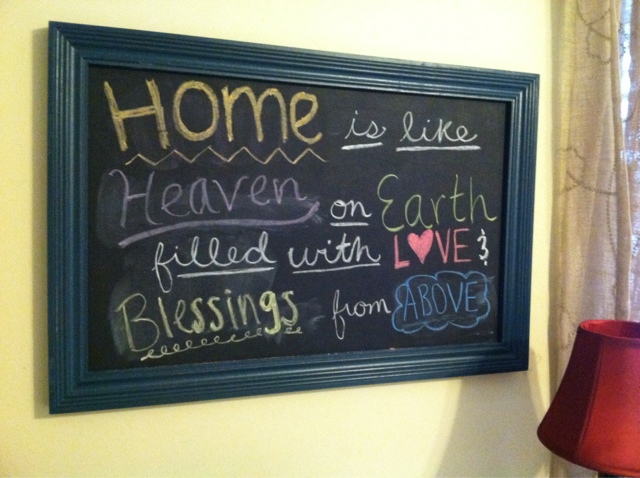 Home is like
Heaven on Earth
filled with LOVE &
Blessings from ABOVE